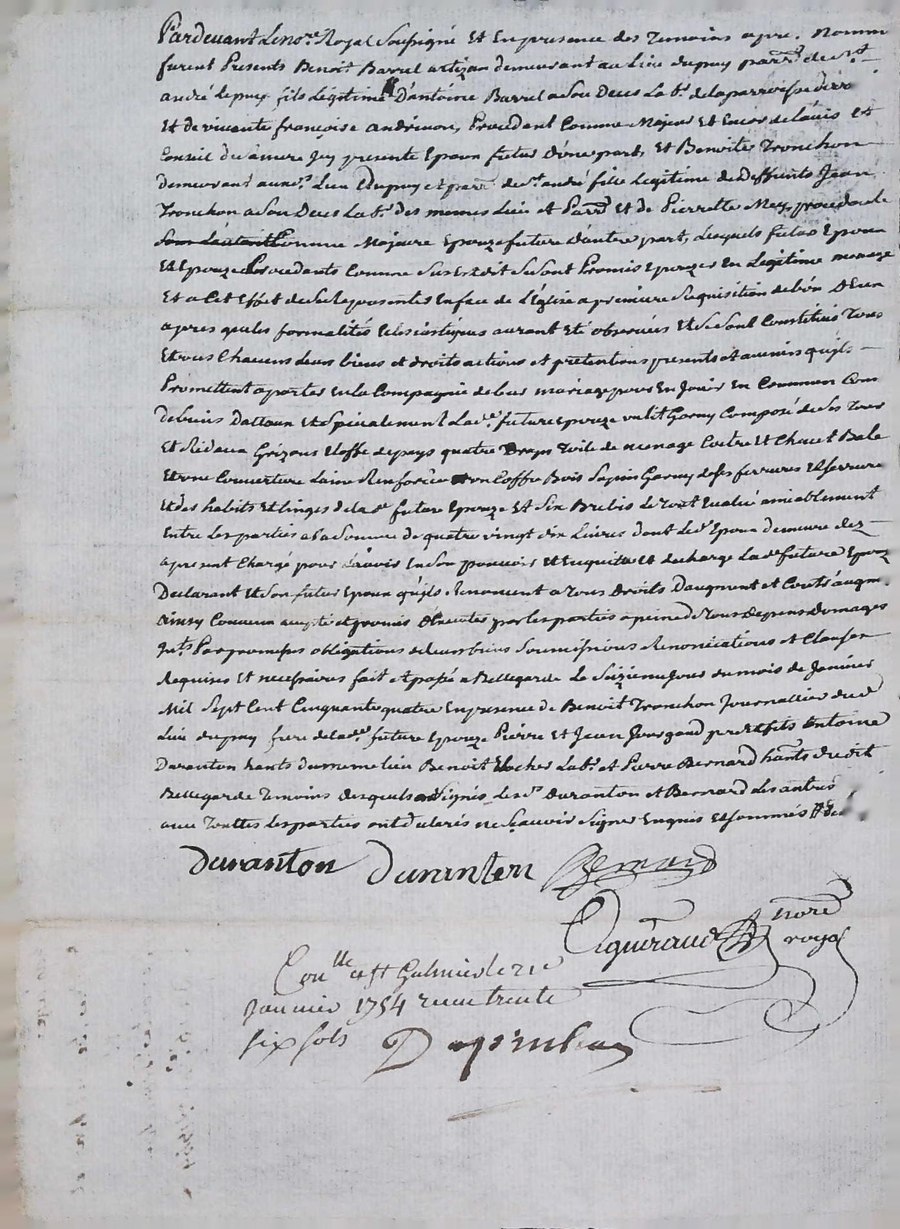 Pardevant Le no.re Royal Soussigné Et En presence des Temoins apre. Nomm
furent Presents Benoit Barrel artizan demeurant au Lieu dupuy parr.e de St
andré Lepuy fils Légitime D'antoine Barrel a Son Deces Lab.r de la parroisse de
Et de vivante francoise andrinon, Procedant Comme Majeur Et Encor de l'avis Et
Conseil de sa mere Jcy presente Epoux futur D'une part, Et Benoite Tronchon
demeurant aumes. Lieu Dupuy et parr.e de St andré fille Legitime de Deffunts Jean
Tronchon a Son Deces Lab.r des memes Lieu et Parr.e Et de Pierrette Mey, procedante
Comme Majeure Epouze future D'autre part, Lesquels futur Epoux
Et Epouze Procedants Comme Sus Est dit Se Sont Promis Epouzer En Legitime mariage
Et a Cet Effet de Se Representer En face de L'Eglise a premiere Requisition de L'un D'Eux
apres que les formalités Eclesiastiques auront Eté observées Et Se Sont Constitués Tous
Et uns Chacuns Leurs biens et droits actions et pretentions presents et avenirs quils
Promettent aporter En la Compagnie de leur mariage pour En Jouir En Commun Com
de biens Dottaux Et Specialement La d.e future Epouze un lit Garny Composé de Ses Tour
Et Rideaux Grizons Etoffe de pays quatre Draps Toile de menage Coitre Et Chavet Bale
Et une Couverture Laine Renforcée un Coffre Bois Sapin Garny de Ses ferrures Et Serrure
Et des habits Et linges de la d.e future Epouze Et Six Brebis Le Tout Evalué amiablement
Entre Les parties a la Somme de quatre vingt dix Livres dont Le d. Epoux demeure dez
apresent Chargé pour L'avoir En Son pouvoir Et En quitte Et decharge La d.e future Epouz
Declarant Et Son futur Epoux qu'ils Renoncent a Tous Droits D'augment et Contr'augm.
Ainsy Convenu accepté et promis Observer par les parties a peine de Tous depens Domages
Int.ts Par promesses obligations de leurs biens Soumissions Renonciations et Clauses
Requises Et necessaires fait Et passé a Bellegarde Le Seizieme Jour du mois de Janvier
Mil Sept Cent Cinquante quatre En presence de Benoit Tronchon Journallier du d
Lieu dupuy frere de la d.e future Epouze Pierre Et Jean pere Et fils Antoine
Duranton hants du meme lieu Benoit Lab.r et Pierre Bernard hants du dit
Bellegarde Temoins Desquels ont Signés Les d.s Duranton et Bernard Les autres
avec Touttes Les parties ont declarés ne Sçavoir Signer Enquis Et Sommés
Duranton Duranton Bernard
no.re
royal
Con.lle a St Galmier le 21e
Janvier 1754 recu trente
six sols